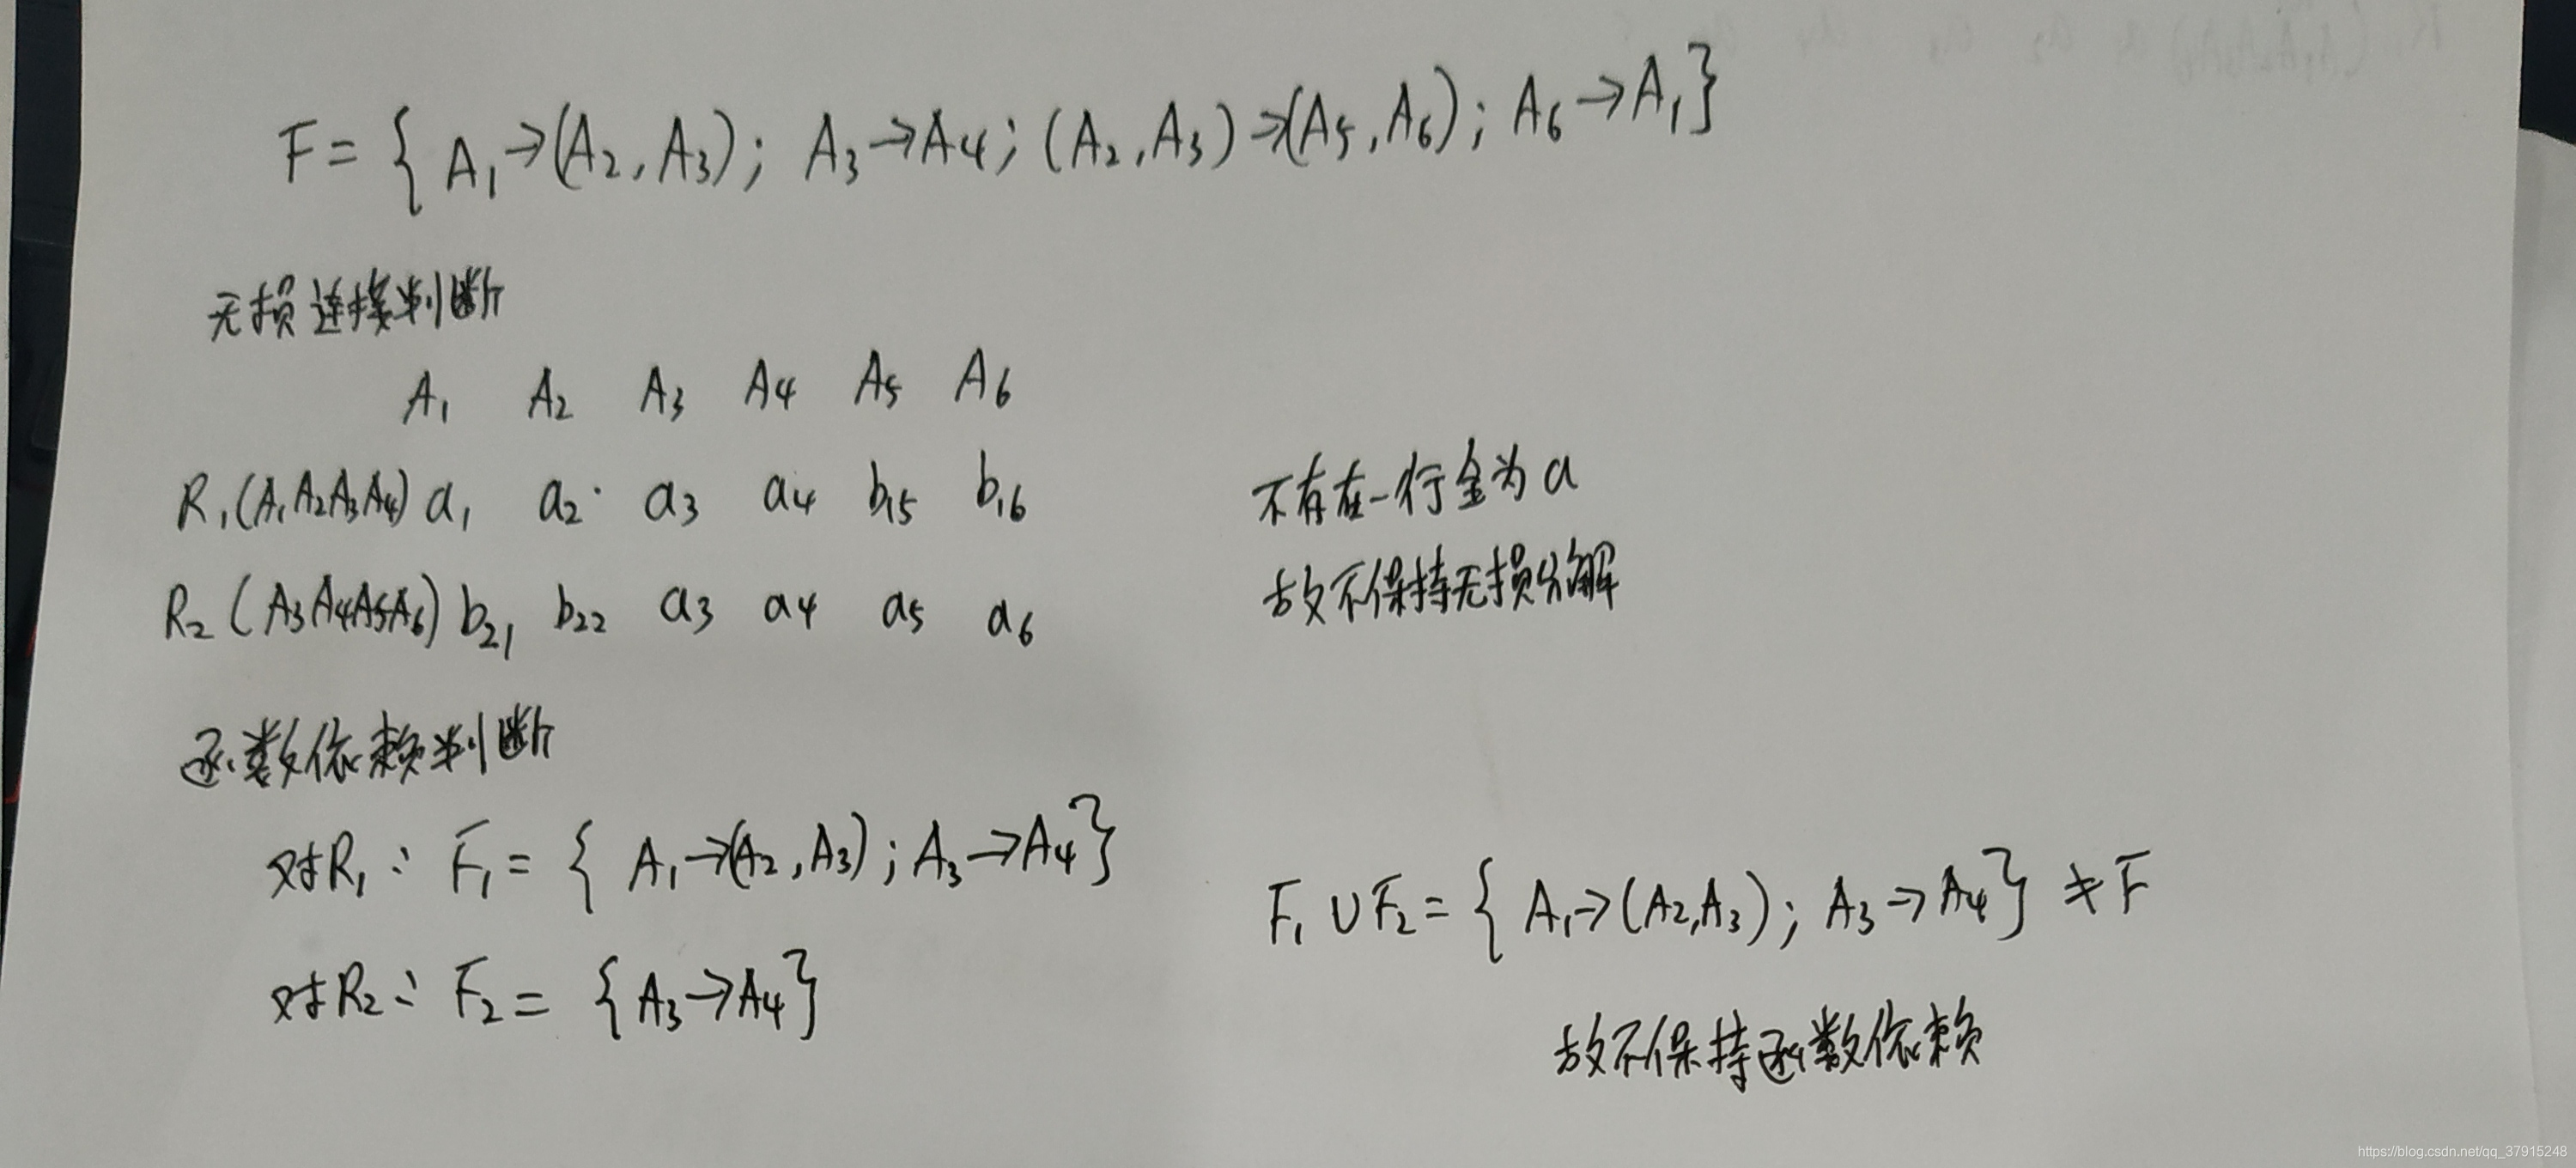 F = { A₁→(A₂,A₃); A₃→A₄; (A₂,A₃)→(A₅,A₆); A₆→A₁}
无损连接判断
A₁ A₂ A₃ A₄ A₅ A₆
R₁(A₁A₂A₃A₄) a₁ a₂ a₃ a₄ b₁₅ b₁₆
R₂(A₃A₄A₅A₆) b₂₁ b₂₂ a₃ a₄ a₅ a₆
不存在一行全为a
故不保持无损分解
函数依赖判断
对R₁: F₁ = { A₁→(A₂,A₃); A₃→A₄}
对R₂: F₂ = {A₃→A₄}
F₁∪F₂ = { A₁→(A₂,A₃); A₃→A₄} ≠ F
故不保持函数依赖
https://blog.csdn.net/qq_37915248